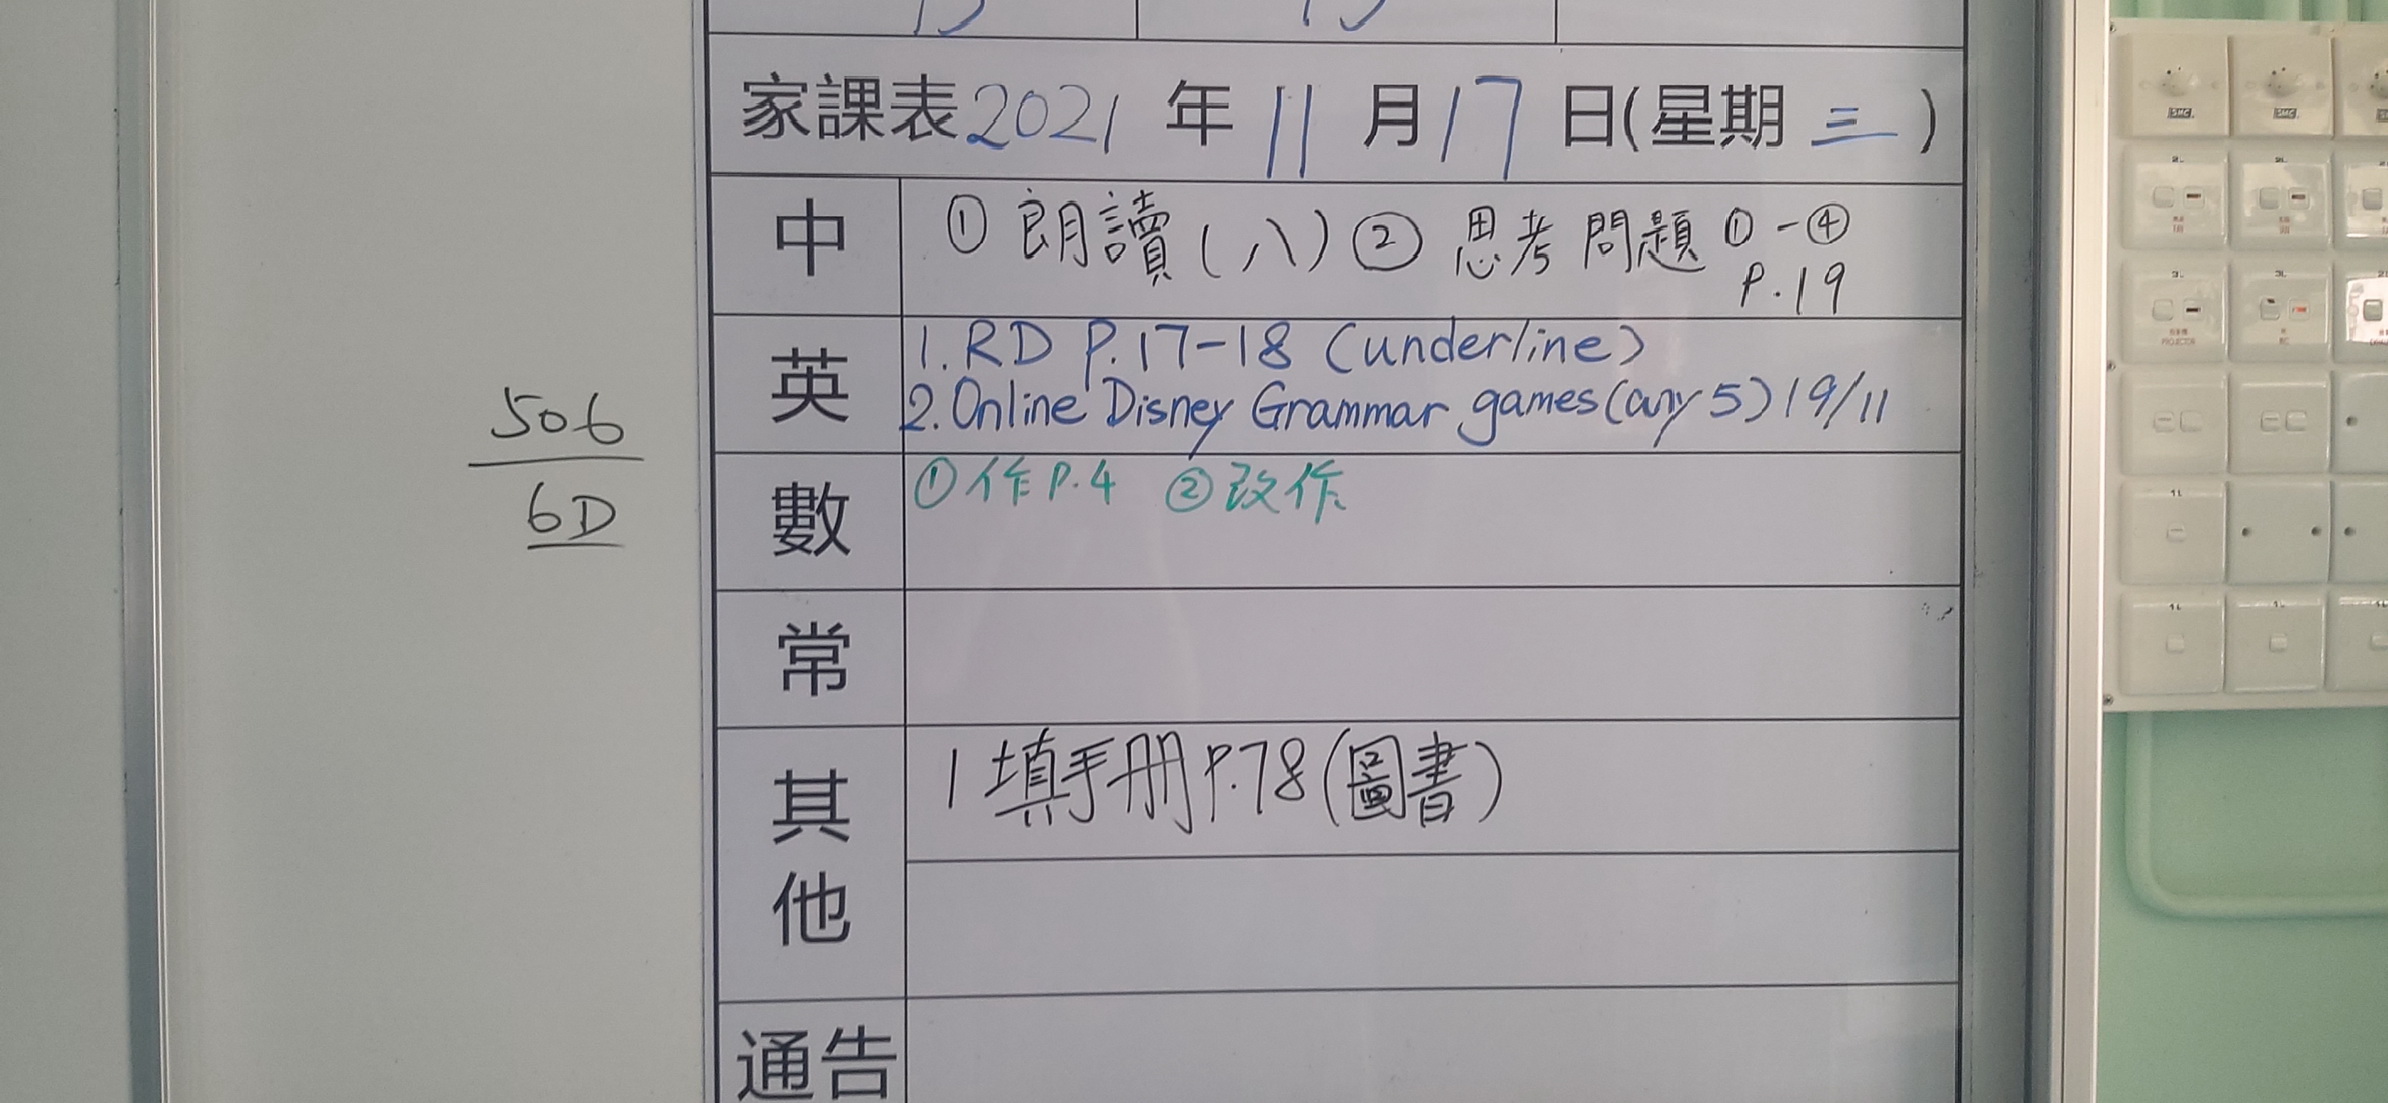 家課表 2021 年 11 月 17 日(星期 三)
中 ① 朗讀(八) ② 思考問題 ①-④
P.19
英 1. RD P.17-18 (underline)
2. Online Disney Grammar games (any 5) 19/11
數 ①作P.4 ②改作
常
其他 1 填手冊P.78(圖書)
通告
506
6D
PROJECTOR